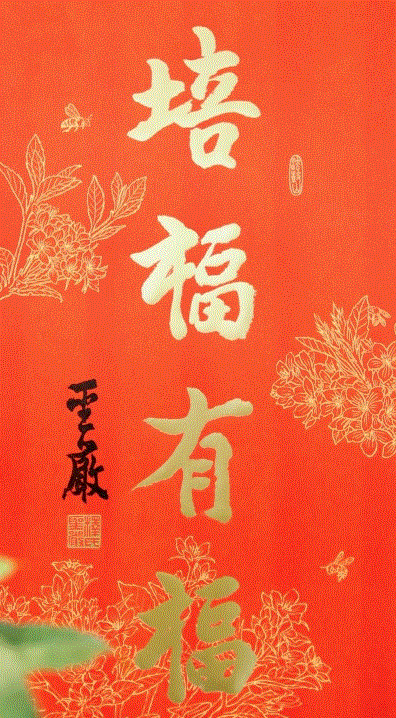 培福有福
聖嚴